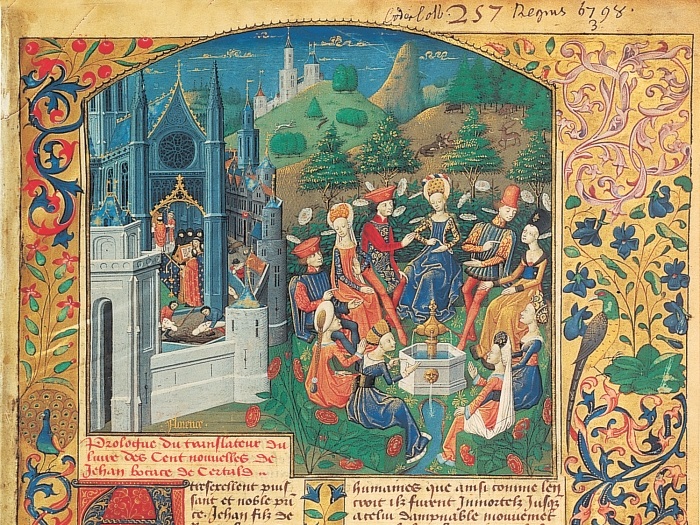 257 Regius 6798.
3.
Florence
Prologue du translateur du
livre des Cent nouvelles de
Jehan bocace de Certald
A tresexcellent puis
sant et noble prī
ce. Jehan filz de
humaines que ainsi comme len
croit ilz furent Inmortelz Jusq̄
a celui dampnable mouuemēt